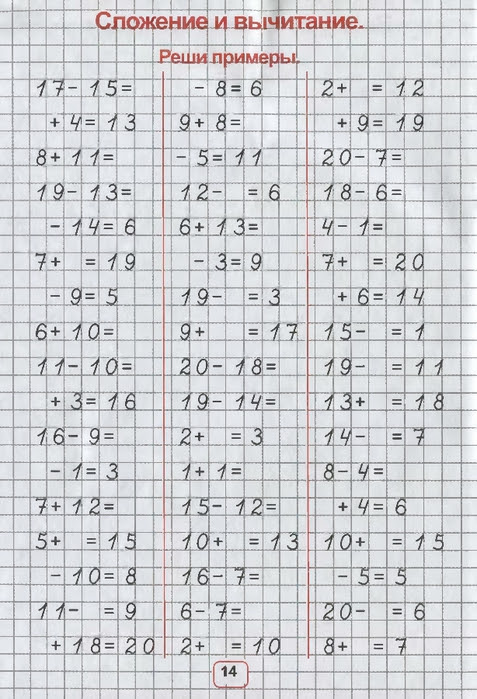 Сложение и вычитание.
Реши примеры.
17-15= - 8=6 2+ =12
+ 4=13 9+8= + 9=19
8+11= - 5=11 20-7=
19-13= 12- =6 18-6=
- 14=6 6+13= 4-1=
7+ =19 - 3=9 7+ =20
- 9=5 19- =3 + 6=14
6+10= 9+ =17 15- =1
11-10= 20-18= 19- =11
+ 3=16 19-14= 13+ =18
16-9= 2+ =3 14- =7
- 1=3 1+1= 8-4=
7+12= 15-12= + 4=6
5+ =15 10+ =13 10+ =15
- 10=8 16-7= - 5=5
11- =9 6-7= 20- =6
+ 18=20 2+ =10 8+ =7
14